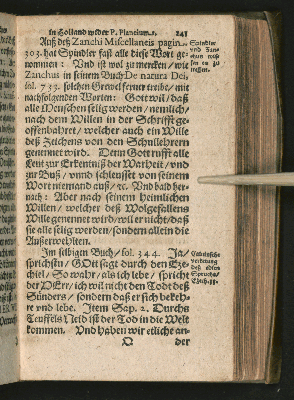 in Holland weder P. Plancium.r. 241
Auß deß Zanchi Miscellaneis pagin.
303. hat Spindler fast alle diese Wort ge-
nommen: Vnd ist wol zu mercken / wie
Zanchus in seinem Buch De natura Dei,
fol. 733. solchen Grewel ferner treibe / mit
nachfolgenden Worten: Gott wil / daß
alle Menschen selig werden / nemlich /
nach dem Willen in der Schrifft ge-
offenbahret / welcher auch ein Wille
deß Zeichens von den Schullehrern
genennet wird. Denn Gott rufft alle
Leut zur Erkentnuß der Warheit / vnd
zur Buß / vnnd schleusset von seinem
Wort niemand auß / ꝛc. Vnd bald her-
nach: Aber nach seinem heimlichen
Willen / welcher deß Wolgefallens
Wille genennet wird / wil er nicht / daß
sie alle selig werden / sondern allein die
Außerwehlten.
Im selbigen Buch / fol. 344. Ja /
sprichstu / GOtt sagt durch den Eze-
chiel / So wahr / als ich lebe / spricht
der HErr / ich wil nicht den Todt deß
Sünders / sondern daß er sich bekeh-
re vnd lebe. Item Sap. 2. Durchs
Teuffels Neid ist der Tod in die Welt
kommen. Vnd haben wir etliche an-
O der
Spindler
vnd Zan-
chum
zu
Calvinische
verkerung
deß edlen
Spruchs /
Ezech.